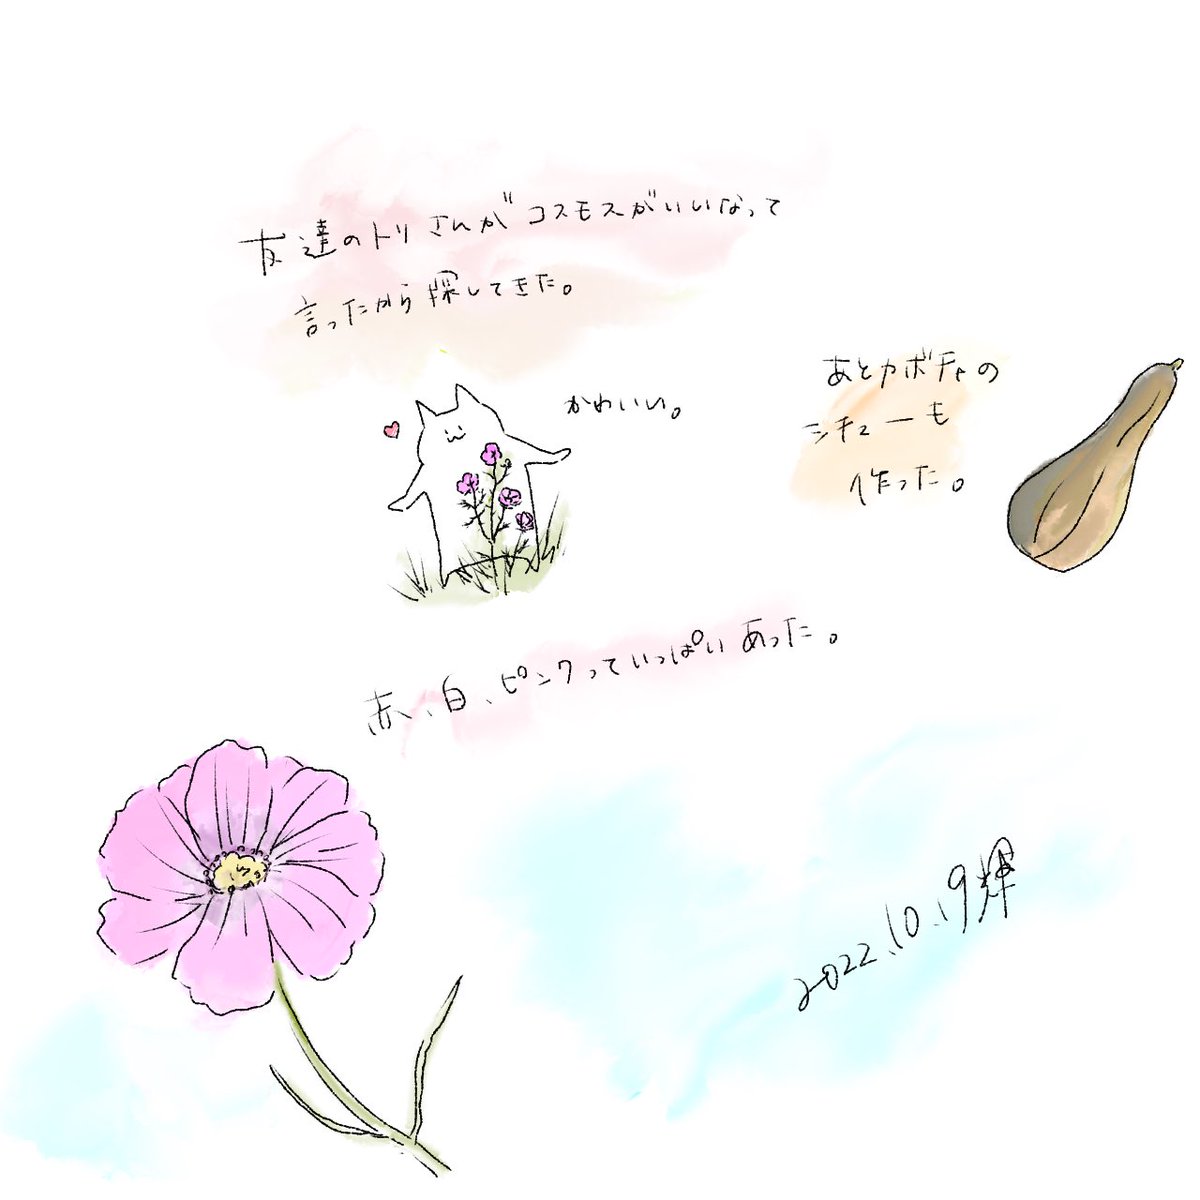 友達のトリさんがコスモスがいいなって
言ったから探してきた。
かわいい。
あとカボチャの
シチューも
作った。
赤、白、ピンクっていっぱいあった。
2022.10.19輝